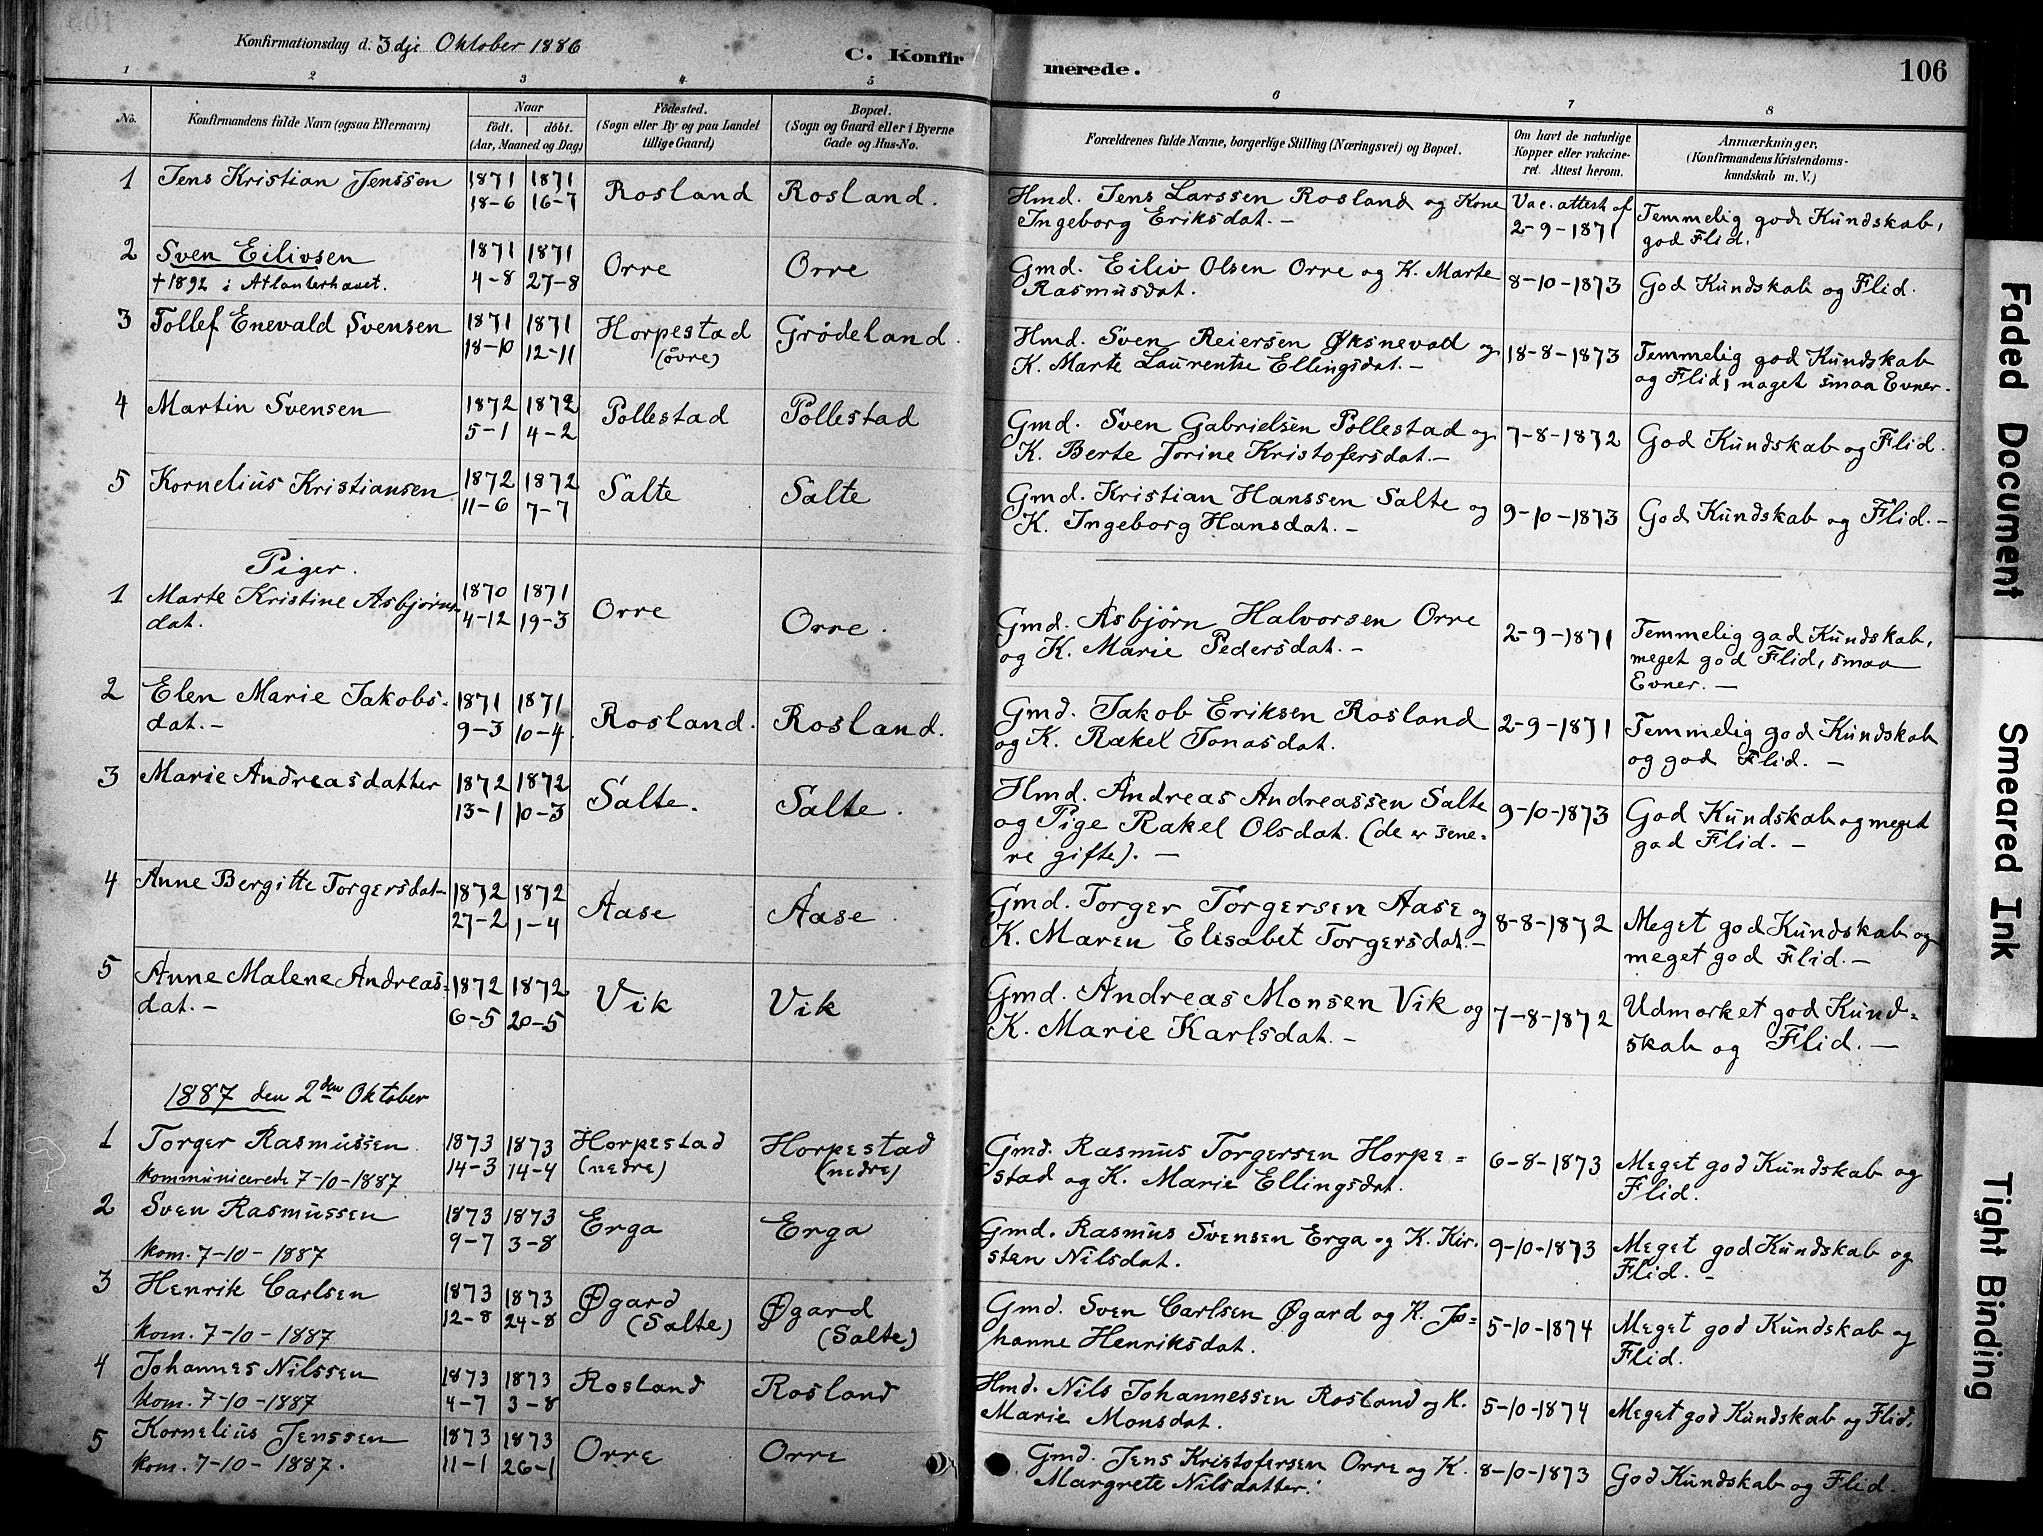 Konfirmationsdag d. 3dje Oktober 1886
C. Konfirmerede.
106
1 2 3 4 5 6 7 8
No.
Konfirmandens fulde Navn (ogsaa Efternavn)
Naar
født. døbt.
(Aar, Maaned og Dag)
Fødested.
(Sogn eller By og paa Landet
tillige Gaard)
Bopæl.
(Sogn og Gaard eller i Byerne
Gade og Hus-No.
Forældrenes fulde Navne, borgerlige Stilling (Næringsvei) og Bopæl.
Om havt de naturlige
Kopper eller vakcine-
ret. Attest herom.
Anmærkninger.
(Konfirmandens Kristendoms-
kundskab m. V.)
1 Jens Kristian Jenssen 1871 18-6 1871 16-7 Rosland Rosland. Hmd. Jens Larssen Rosland og Kone
Ingeborg Eriksdat. - Vac. attest af
2-9-1871 Temmelig god Kundskab,
god Flid.
2 Sven Eilivsen 1871 4-8 1871 27-8 Orre Orre
+ 1892 i Atlanterhavet.
Gmd. Eiliv Olsen Orre og K. Marte
Rasmusdat. 8-10-1873 God Kundskab og Flid.
3 Tollef Enevald Svensen 1871 18-10 1871 12-11 Horpestad
(øvre) Grødeland. Hmd. Sven Reiersen Øksnevad og
K. Marte Laurentse Ellingsdat. - 18-8-1873 Temmelig god Kundskab
og Flid, noget smaa Evner.
4 Martin Svensen 1872 5-1 1872 4-2 Pollestad Pollestad Gmd. Sven Gabrielsen Pollestad og
K. Berte Jorine Kristofersdat. - 7-8-1872 God Kundskab og Flid.
5 Kornelius Kristiansen 1872 11-6 1872 7-7 Salte Salte Gmd. Kristian Hanssen Salte og
K. Ingeborg Hansdat. - 9-10-1873 God Kundskab og Flid. -
Piger.
1 Marte Kristine Asbjørns-
dat. 1870 4-12 1871 19-3 Orre Orre. Gmd. Asbjørn Halvorsen Orre
og K. Marie Pedersdat. - 2-9-1871 Temmelig god Kundskab,
meget god Flid, smaa
Evner. -
2 Elen Marie Jakobs-
dat. - 1871 9-3 1871 10-4. Rosland. Rosland. Gmd. Jakob Eriksen Rosland
og K. Rakel Jonasdat. 2-9-1871 Temmelig god Kundskab
og god Flid. -
3 Marie Andreasdatter 1872 13-1 1872 10-3 Salte. Salte. Hmd. Andreas Andreassen Salte
og Pige Rakel Olsdat. (de er sene-
re gifte). - 9-10-1873 God Kundskab og meget
god Flid. -
4 Anne Bergitte Torgersdat- 1872 27-2 1872 1-4 Aase Aase. Gmd. Torger Torgersen Aase og
K. Maren Elisabet Torgersdat. - 8-8-1872 Meget god Kundskab og
meget god Flid. -
5 Anne Malene Andreas-
dat. - 1872 6-5 1872 20-5 Vik Vik Gmd. Andreas Monsen Vik og
K. Marie Karlsdat. - 7-8-1872 Udmærket god Kund-
skab og Flid. -
1887 den 2den Oktober
1 Torger Rasmussen. 1873 14-3 1873 14-4 Horpestad
(nedre) Horpestad
(nedre)
kommunicerede 7-10-1887
Gmd. Rasmus Torgersen Horpe-
stad og K. Marie Ellingsdat. 6-8-1873 Meget god Kundskab og
Flid.
2 Sven Rasmussen 1873 9-7 1873 3-8 Erga Erga
kom. 7-10-1887
Gmd. Rasmus Svensen Erga og K. Kir-
sten Nilsdat. 9-10-1873 Meget god Kundskab og
Flid. -
3 Henrik Carlsen 1873 12-8 1873 24-8 Øgard
(Salte) Øgard
(Salte)
kom. 7-10-1887
Gmd. Sven Carlsen Øgard og K. Jo-
hanne Henriksdat. 5-10-1874 Meget god Kundskab og
Flid.
4 Johannes Nilssen 1873 4-7 1873 3-8 Rosland Rosland
kom. 7-10-1887
Hmd. Nils Johannessen Rosland og K.
Marie Monsdat. 5-10-1874 Meget god Kundskab og Flid.
5 Kornelius Jenssen 1873 11-1 1873 26-1 Orre Orre
kom. 7-10-1887.
Gmd. Jens Kristofersen Orre og K.
Margrete Nilsdatter. 8-10-1873 God Kundskab og Flid.
Faded Document
Smeared Ink
Tight Binding